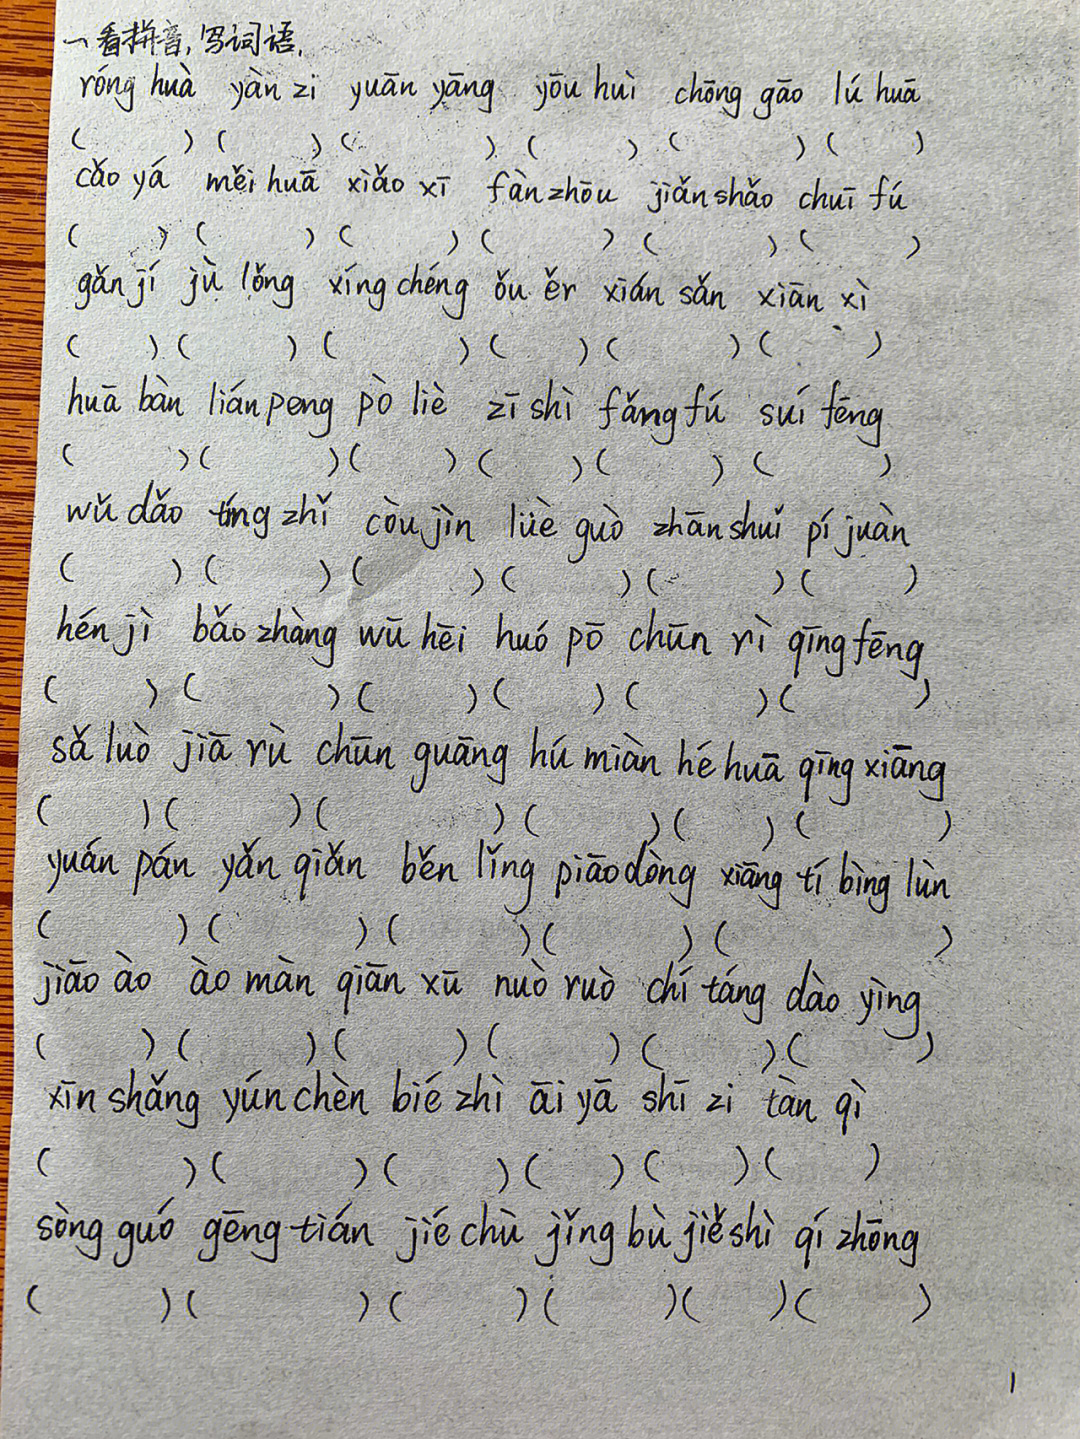 一 看拼音,写词语.
róng huà yàn zi yuān yāng yōu huì chōng gāo lú huā
( ) ( ) ( ) ( ) ( ) ( )
cǎo yá měi huā xiǎo xī fàn zhōu jiǎn shǎo chuī fú
( ) ( ) ( ) ( ) ( ) ( )
gǎn jí jù lǒng xíng chéng ǒu ěr xián sǎn xiān xì
( ) ( ) ( ) ( ) ( ) ( )
huā bàn lián peng pò liè zī shì fǎng fú suí fēng
( ) ( ) ( ) ( ) ( ) ( )
wǔ dǎo tíng zhǐ còu jìn lüè guò zhān shuǐ pí juàn
( ) ( ) ( ) ( ) ( ) ( )
hén jì bǎo zhàng wū hēi huó pō chūn rì qīng fēng
( ) ( ) ( ) ( ) ( ) ( )
sǎ luò jiā rù chūn guāng hú miàn hé huā qīng xiāng
( ) ( ) ( ) ( ) ( ) ( )
yuán pán yǎn qiǎn běn lǐng piāo dòng xiāng tí bìng lùn
( ) ( ) ( ) ( ) ( )
jiāo ào ào màn qiān xū nuò ruò chí táng dào yìng
( ) ( ) ( ) ( ) ( ) ( )
xīn shǎng yún chèn bié zhì āi yā shī zi tàn qì
( ) ( ) ( ) ( ) ( ) ( )
sòng guó gēng tián jié chù jǐng bù jiě shì qí zhōng
( ) ( ) ( ) ( ) ( ) ( )
1